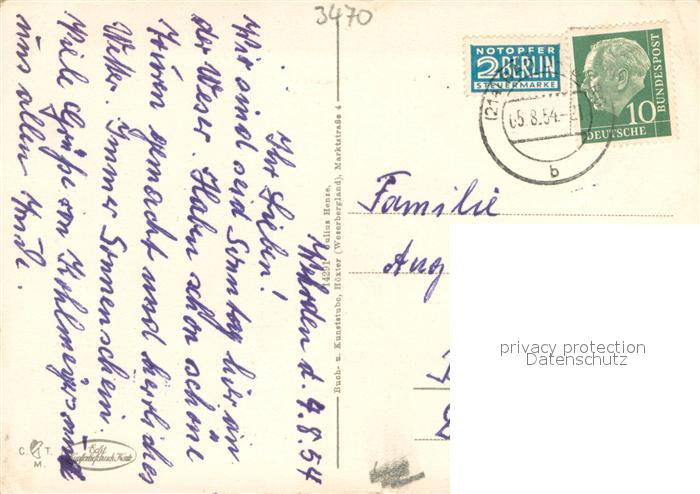 3470
NOTOPFER
2 BERLIN
STEUERMARKE
DEUTSCHE
BUNDESPOST
10
05.8.54
b
Wehrden d. 4.8.54
Ihr Lieben!
Wir sind seit Sonntag hier an
der Weser. Haben schon schöne
Touren gemacht und herrliches
Wetter. Immer Sonnenschein.
Viele Grüße von
uns allen
Familie
Aug
14291 Julius Henze,
Buch- u. Kunststube, Höxter (Weserbergland), Marktstraße 4
privacy protection
Datenschutz
C. T.
M.
Echt